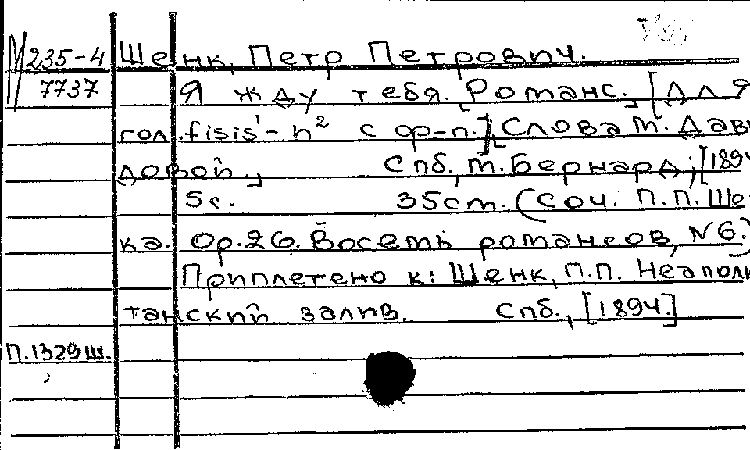 М 235-4 Шенк, Петр Петрович.
7737 Я жду тебя. Романс. [Для
гол. fisis¹-h² с ф-п.], Слова М. Давы
довой. Спб., М. Бернард, [1894
5с. 35cm. (Соч. П.П. Шен
ка. Op.26. Восемь романсов, №6.)
Приплетено к: Шенк, П.П. Неаполи
танский залив. Спб., [1894.]
П.1329ш.